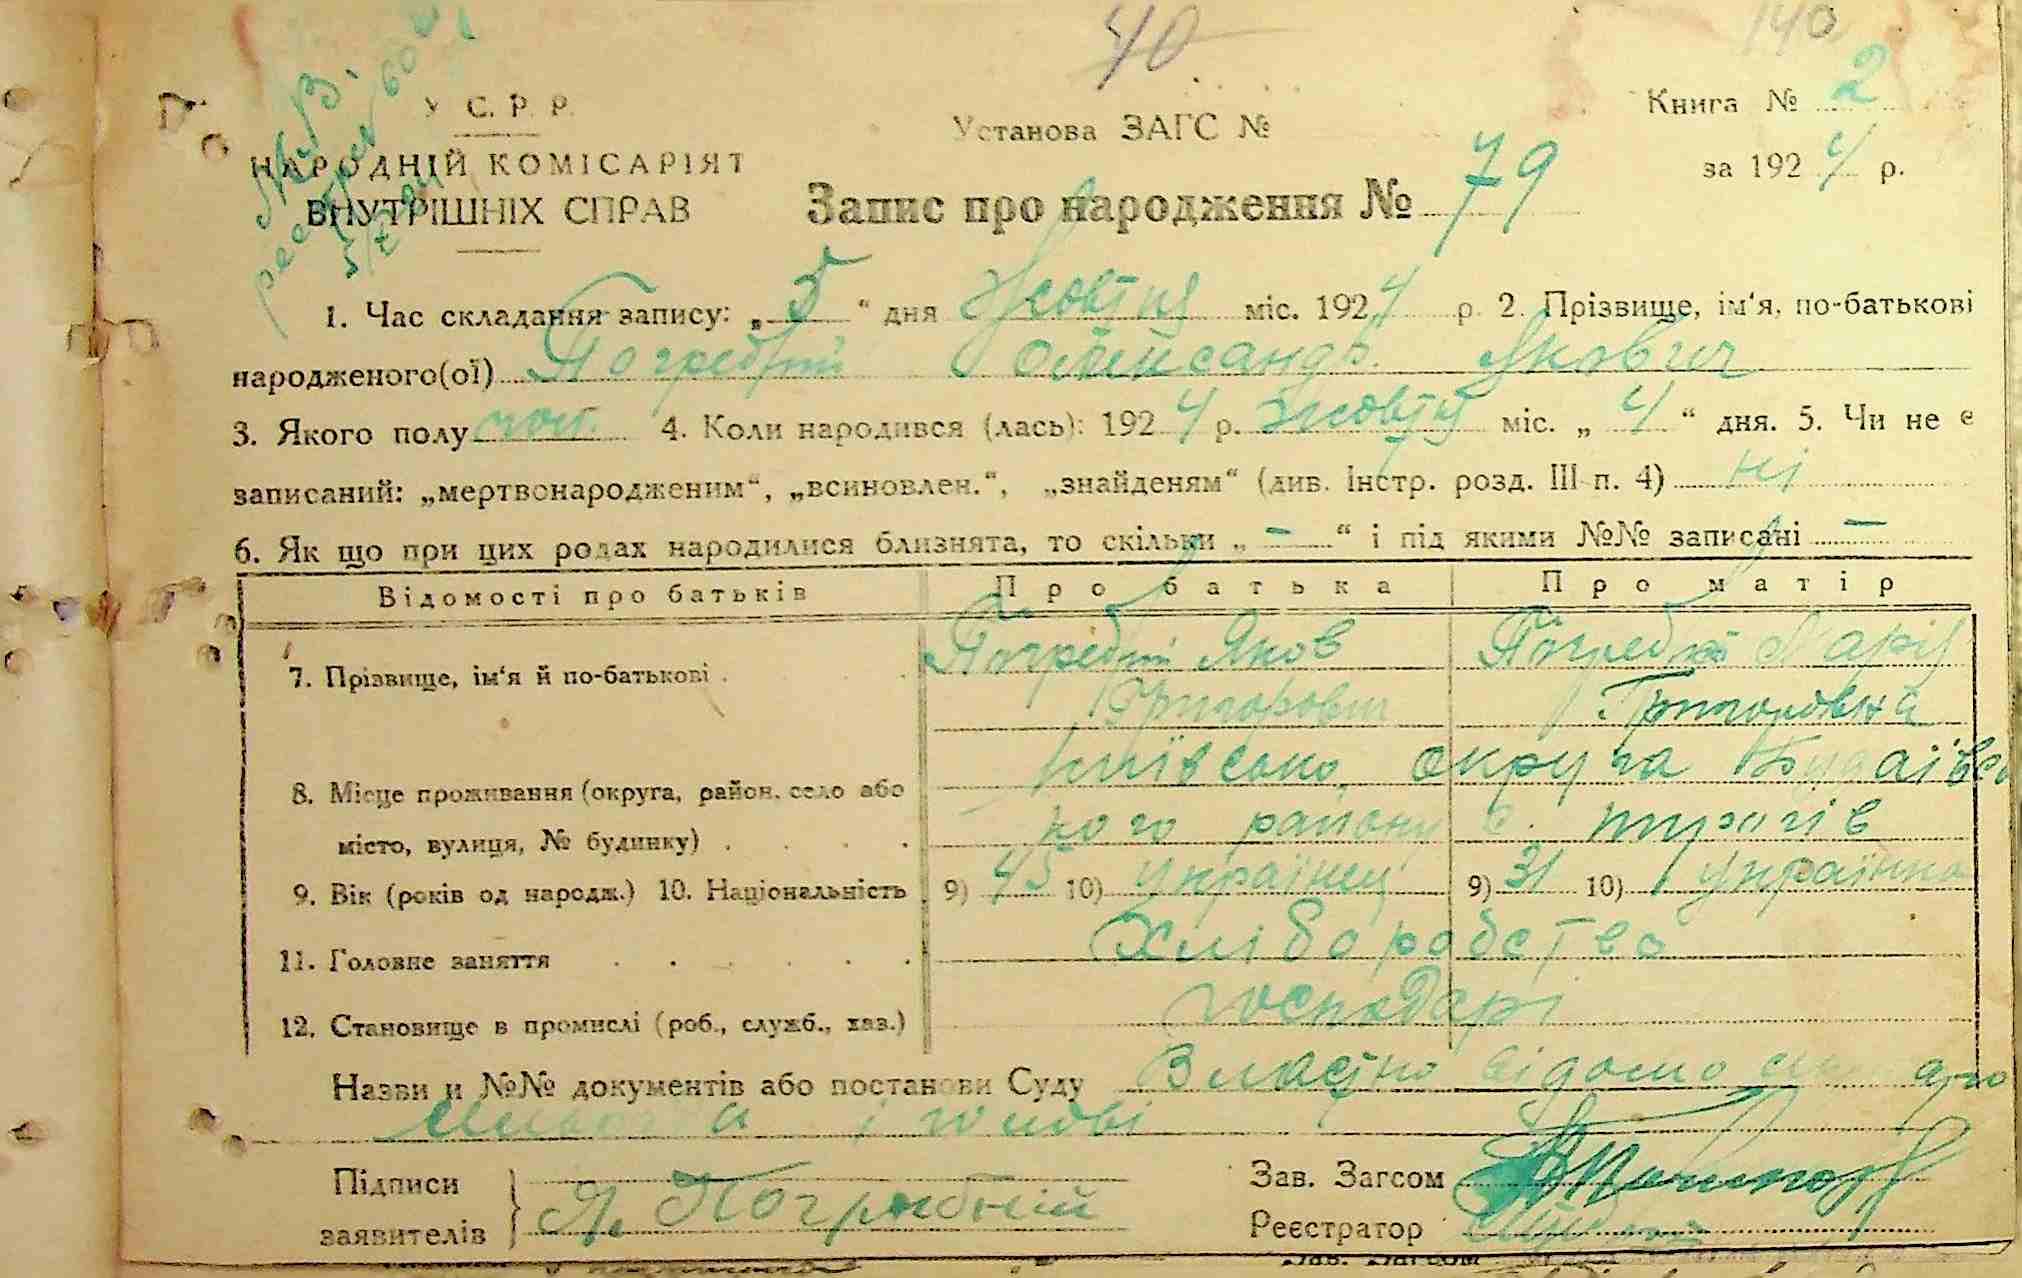 40
140
У С. Р. Р.
НАРОДНІЙ КОМІСАРІЯТ
ВНУТРІШНІХ СПРАВ
Установа ЗАГС №
Книга № 2
за 1924 р.
Запис про народження № 79
1. Час складання запису: „5“ дня Жовтня міс. 1924 р. 2. Прізвище, ім‘я, по-батькові
народженого(ої) Погребній Олександр Якович
3. Якого полу чол. 4. Коли народився (лась): 1924 р. жовтня міс. „4“ дня. 5. Чи не є
записаний: „мертвонародженим“, „всиновлен.“, „знайденям“ (див. Інстр. розд. III п. 4) ні
6. Як що при цих родах народилися близнята, то скільки „ – “ і під якими №№ записані –
Відомості про батьків Про батька Про матір
7. Прізвище, ім‘я й по-батькові Погребній Яков Погребна Марія
Григорович Григоровна
8. Місце проживання (округа, район, село або Київська округа Будаївсь
місто, вулиця, № будинку) кого району с.
9. Вік (років од народж.) 10. Національність 9) 45 10) Українец 9) 31 10) Українка
11. Головне заняття Хліборобство
12. Становище в промислі (роб., служб., хаз.) господарі
Назви и №№ документів або постанови Суду Властно відомо
і голові
Підписи
заявителів Я. Погребній
Зав. Загсом
Реєстратор